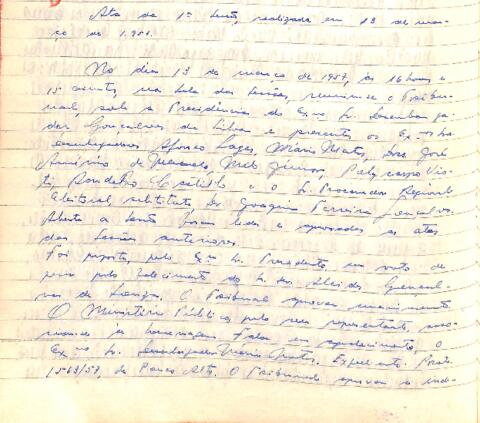 Ata da 1ª Sessão, realizada em 13 de mar-
ço de 1957.
No dia 13 de março de 1957, às 16 horas e
15 minutos, na sala das sessões, reuniu-se o Tribu-
nal, sob a Presidência do Exmo Sr. Desembarga-
dor Gonçalves da Silva e presentes os Exmos Srs.
Desembargadores Afonso Lages, Mário Matos, Drs. José
Américo de Macedo, Melo Júnior, Polycarpo Vio-
ti, e o Sr. Procurador Regional
Eleitoral substituto Dr. Joaquim Ferreira Gonçalves.
Aberta a sessão foram lidas e aprovadas as atas
das Sessões anteriores.
Foi proposto, pelo Exmo Sr. Presidente, um voto de
pesar pelo falecimento do Sr. Alcides Gonçal-
ves de Souza. O Tribunal aprovou unanimemente.
O Ministério Público, pelo seu representante, asso-
ciou-se às homenagens. Falou, em agradecimento, o
Exmo Sr. Desembargador Mário Matos. Expediente. Prot.
1563/57, de Pouso Alto. O Tribunal aprovou a inde-